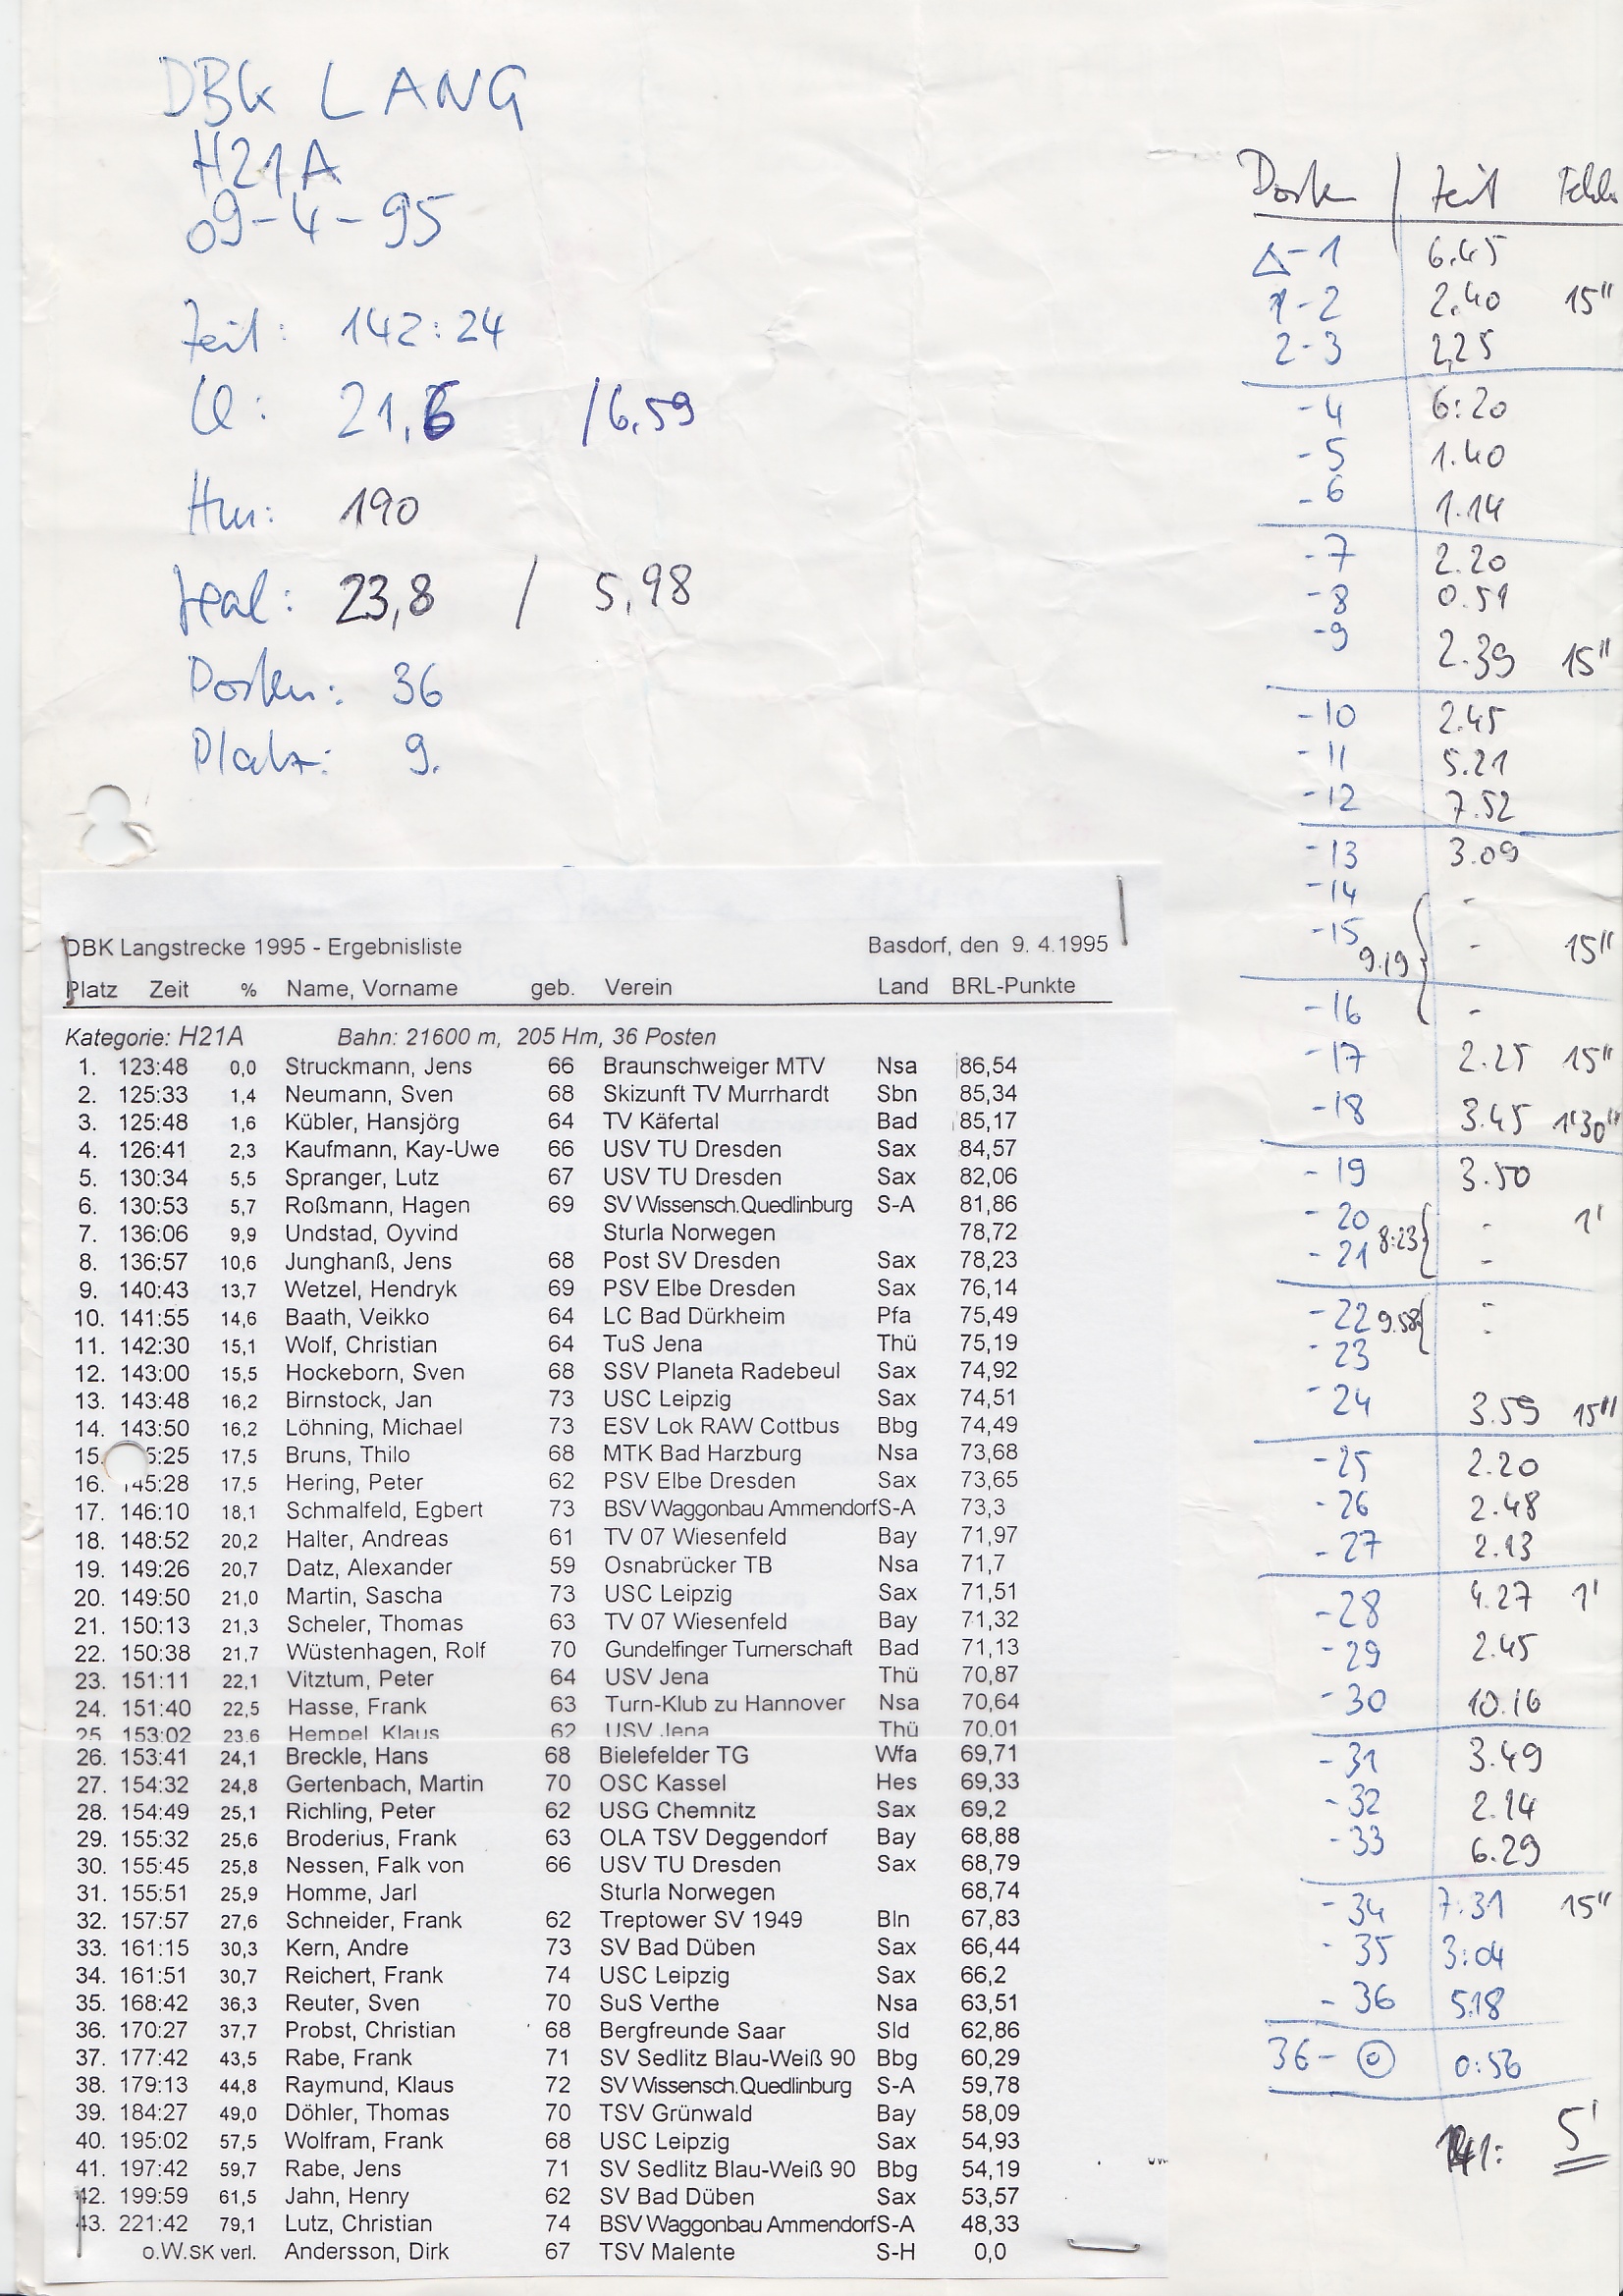 DBK LANG
H21A
09-4-95
Zeit: 142:24
Lä: 21,6 /6,59
Hm: 190
real: 23,8 / 5,98
Posten: 36
Platz: 9.
Posten / Zeit Fehler
△-1 6.45
1-2 2.40 15"
2-3 2,25
-4 6:20
-5 1.40
-6 1.14
-7 2.20
-8 0.51
-9 2.39 15"
-10 2.45
-11 5.21
-12 7.52
-13 3.09
-14 -
-15 9.19 { - 15"
-16 -
-17 2.25 15"
-18 3.45 1'30"
-19 3.50
-20 - 1'
-21 8:23 { -
-22 9.58 { -
-23 -
-24 3.59 15"
-25 2.20
-26 2.48
-27 2.13
-28 4.27 1'
-29 2.45
-30 10.16
-31 3.49
-32 2.14
-33 6.29
-34 7.31 15"
-35 3:04
-36 5.18
36-◎ 0:56
141: 5'
DBK Langstrecke 1995 - Ergebnisliste Basdorf, den 9. 4.1995
Platz Zeit % Name, Vorname geb. Verein Land BRL-Punkte
Kategorie: H21A Bahn: 21600 m, 205 Hm, 36 Posten
1. 123:48 0,0 Struckmann, Jens 66 Braunschweiger MTV Nsa 86,54
2. 125:33 1,4 Neumann, Sven 68 Skizunft TV Murrhardt Sbn 85,34
3. 125:48 1,6 Kübler, Hansjörg 64 TV Käfertal Bad 85,17
4. 126:41 2,3 Kaufmann, Kay-Uwe 66 USV TU Dresden Sax 84,57
5. 130:34 5,5 Spranger, Lutz 67 USV TU Dresden Sax 82,06
6. 130:53 5,7 Roßmann, Hagen 69 SV Wissensch.Quedlinburg S-A 81,86
7. 136:06 9,9 Undstad, Oyvind Sturla Norwegen 78,72
8. 136:57 10,6 Junghanß, Jens 68 Post SV Dresden Sax 78,23
9. 140:43 13,7 Wetzel, Hendryk 69 PSV Elbe Dresden Sax 76,14
10. 141:55 14,6 Baath, Veikko 64 LC Bad Dürkheim Pfa 75,49
11. 142:30 15,1 Wolf, Christian 64 TuS Jena Thü 75,19
12. 143:00 15,5 Hockeborn, Sven 68 SSV Planeta Radebeul Sax 74,92
13. 143:48 16,2 Birnstock, Jan 73 USC Leipzig Sax 74,51
14. 143:50 16,2 Löhning, Michael 73 ESV Lok RAW Cottbus Bbg 74,49
15. 5:25 17,5 Bruns, Thilo 68 MTK Bad Harzburg Nsa 73,68
16. 145:28 17,5 Hering, Peter 62 PSV Elbe Dresden Sax 73,65
17. 146:10 18,1 Schmalfeld, Egbert 73 BSV Waggonbau Ammendorf S-A 73,3
18. 148:52 20,2 Halter, Andreas 61 TV 07 Wiesenfeld Bay 71,97
19. 149:26 20,7 Datz, Alexander 59 Osnabrücker TB Nsa 71,7
20. 149:50 21,0 Martin, Sascha 73 USC Leipzig Sax 71,51
21. 150:13 21,3 Scheler, Thomas 63 TV 07 Wiesenfeld Bay 71,32
22. 150:38 21,7 Wüstenhagen, Rolf 70 Gundelfinger Turnerschaft Bad 71,13
23. 151:11 22,1 Vitztum, Peter 64 USV Jena Thü 70,87
24. 151:40 22,5 Hasse, Frank 63 Turn-Klub zu Hannover Nsa 70,64
25. 153:02 23,6 Hempel, Klaus 62 USV Jena Thü 70,01
26. 153:41 24,1 Breckle, Hans 68 Bielefelder TG Wfa 69,71
27. 154:32 24,8 Gertenbach, Martin 70 OSC Kassel Hes 69,33
28. 154:49 25,1 Richling, Peter 62 USG Chemnitz Sax 69,2
29. 155:32 25,6 Broderius, Frank 63 OLA TSV Deggendorf Bay 68,88
30. 155:45 25,8 Nessen, Falk von 66 USV TU Dresden Sax 68,79
31. 155:51 25,9 Homme, Jarl Sturla Norwegen 68,74
32. 157:57 27,6 Schneider, Frank 62 Treptower SV 1949 Bln 67,83
33. 161:15 30,3 Kern, Andre 73 SV Bad Düben Sax 66,44
34. 161:51 30,7 Reichert, Frank 74 USC Leipzig Sax 66,2
35. 168:42 36,3 Reuter, Sven 70 SuS Verthe Nsa 63,51
36. 170:27 37,7 Probst, Christian 68 Bergfreunde Saar Sld 62,86
37. 177:42 43,5 Rabe, Frank 71 SV Sedlitz Blau-Weiß 90 Bbg 60,29
38. 179:13 44,8 Raymund, Klaus 72 SV Wissensch.Quedlinburg S-A 59,78
39. 184:27 49,0 Döhler, Thomas 70 TSV Grünwald Bay 58,09
40. 195:02 57,5 Wolfram, Frank 68 USC Leipzig Sax 54,93
41. 197:42 59,7 Rabe, Jens 71 SV Sedlitz Blau-Weiß 90 Bbg 54,19
42. 199:59 61,5 Jahn, Henry 62 SV Bad Düben Sax 53,57
43. 221:42 79,1 Lutz, Christian 74 BSV Waggonbau Ammendorf S-A 48,33
o.W.SK verl. Andersson, Dirk 67 TSV Malente S-H 0,0